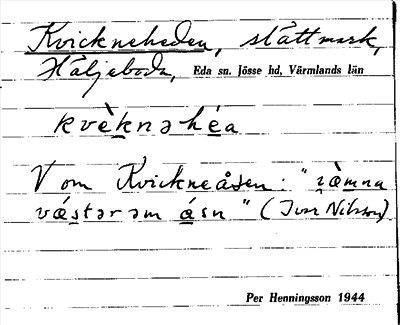 Kvickneheden, slåttmark,
Häljeboda, Eda sn. Jösse hd, Värmlands län
kvè̱knəhé̱a
V om Kvickneåsen: "ɹæ̀mna
vǽ̱stər əm ǽ̱sn" (Ivar Nilsson)
Per Henningsson 1944